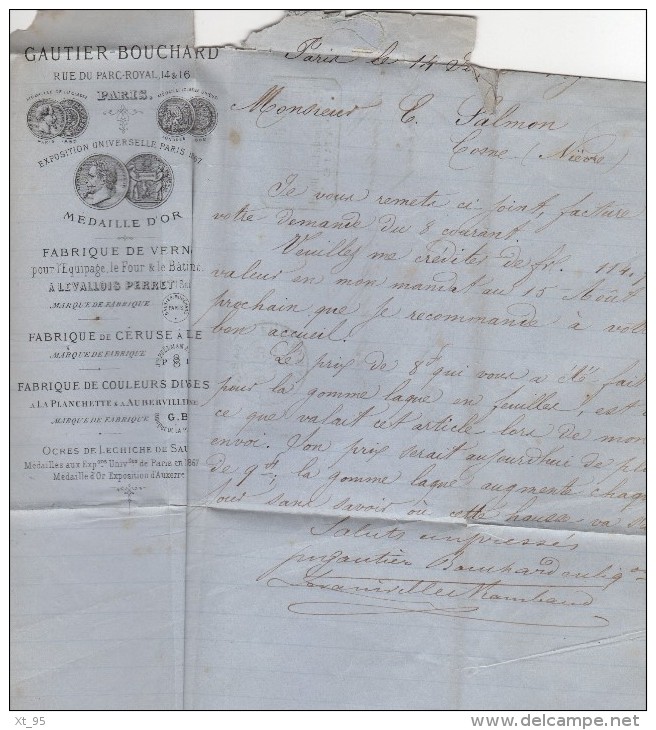 GAUTIER-BOUCHARD
RUE DU PARC-ROYAL, 14 & 16
PARIS.
EXPOSITION UNIVERSELLE, PARIS 1867
MÉDAILLE D'OR
FABRIQUE DE VERN
pour l'Équipage, le Four & le Bâtim
À LEVALLOIS PERRET
MARQUE DE FABRIQUE
FABRIQUE DE CÉRUSE À LE
MARQUE DE FABRIQUE
FABRIQUE DE COULEURS DI SES
À LA PLANCHETTE & À AUBERVILLIE
MARQUE DE FABRIQUE G.B
OCRES DE LECHICHE DE SAU
Médailles aux Expons Univlles de Paris en 1867
Médaille d'Or Exposition d'Auxerre
Paris le 14
Monsieur E. Salmon
Cosne (Nièvre)
Je vous remets ci joint, facture
votre demande du 8 courant.
Veuillez me créditer de frs. 114,
valeur en mon mandat au 15 Août
prochain que je recommande à votre
bon accueil.
Le prix de 8f qui vous a été fait
pour la gomme laque en feuilles, est
ce que valait cet article lors de mon
envoi. Son prix serait aujourd'hui de pl
de 9f; la gomme laque augmente chaq
jour sans savoir où cette hausse va
Saluts empressés
Gautier Bouchard
Xt_95
delcampe.net